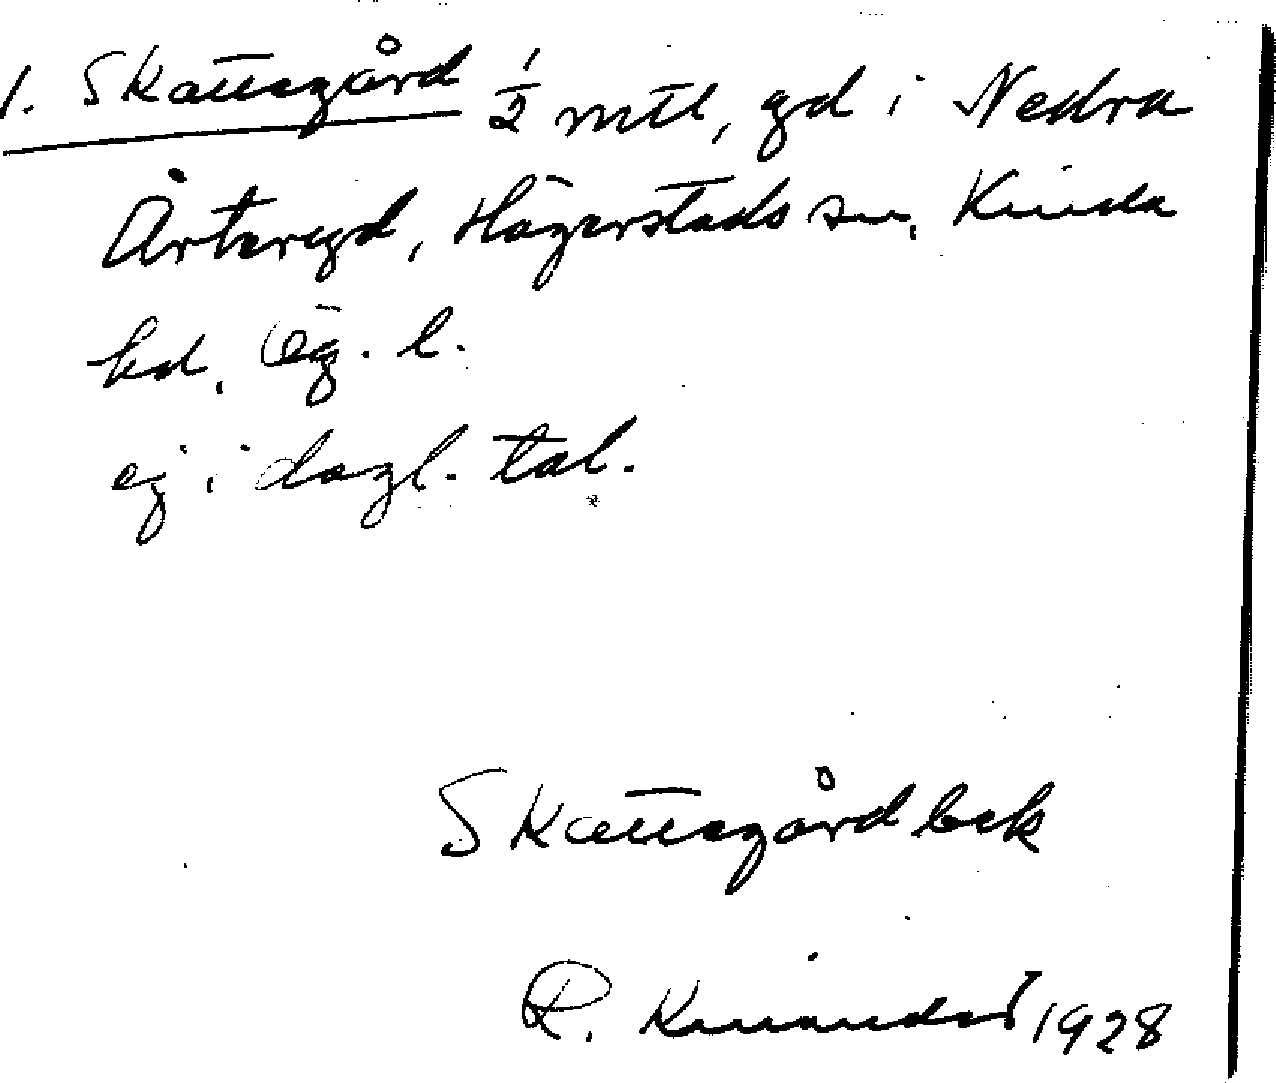 1. Skattegård ½ mtl, gd i Nedra
Årteryd, Hägerstads sn, Kinda
hd, Ög. l.
ej i dagl. tal.
Skattegård bek
R. Kinander 1928